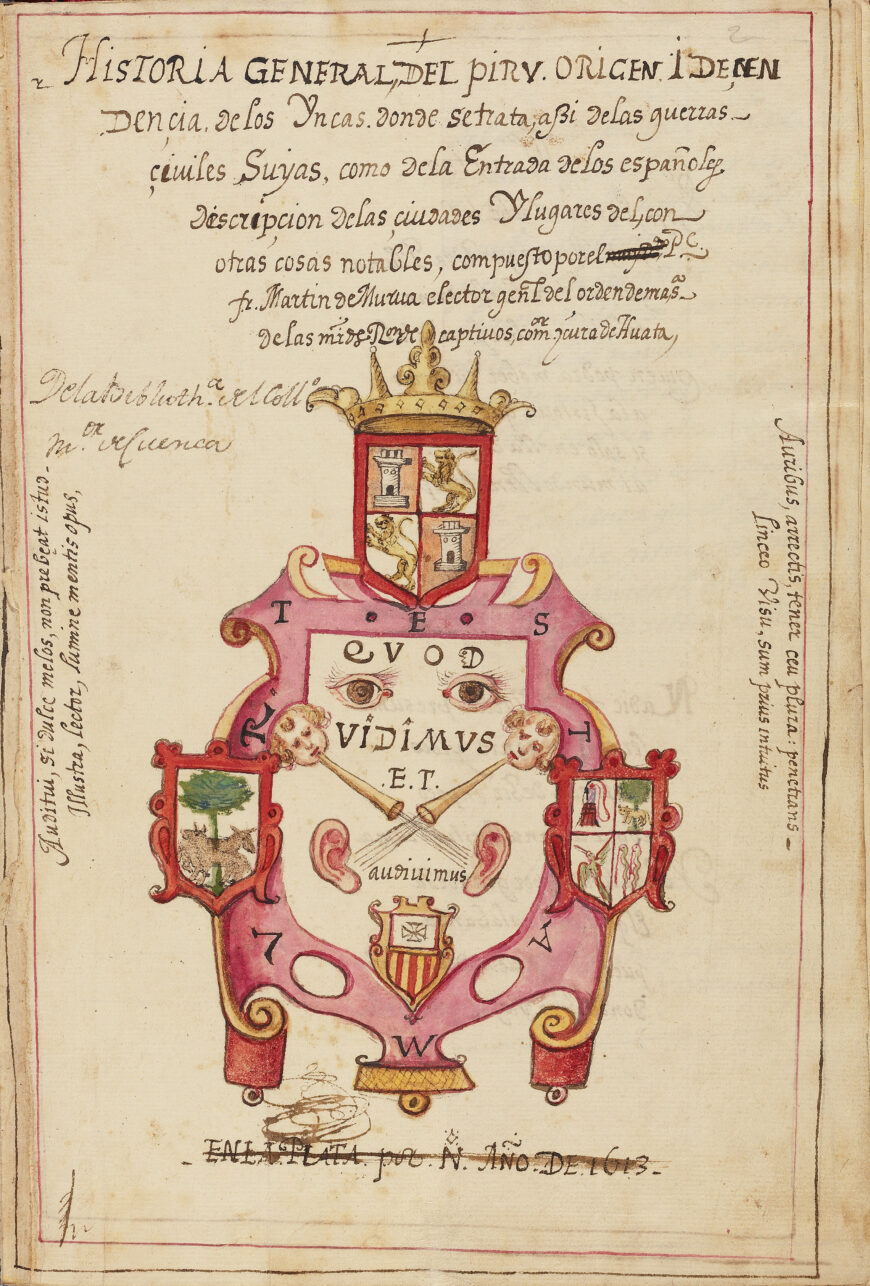 HISTORIA GENERAL, DEL PIRV. ORIGEN. I DEÇEN
DENÇIA. de los Yncas. donde se trata, aßi de las guerras
çiuiles Suyas, como de la Entrada de los españoles,
descripcion de las çiudades Y lugares del, con
otras cosas notables, compuesto por el P.e.
fr. Martin de Murua elector gen.l del orden de nr̃a s.a
de las m.des captiuos, com.or y cura de Huata,
De la Biblioth.a del Coll.o
m.or de Cuenca
Auditui, si dulce melos, non prebeat istud
Illustra, lector, lumine mentis opus,
Auribus, arrectis, tener ceu plura: penetrans
Linceo Visu, sum prius intuitus
T E S
QVOD
R T
VIDIMVS
.E.T.
audiuimus
7 A
W
EN LA PLATA. por. Ñ. AÑO. DE. 1613.